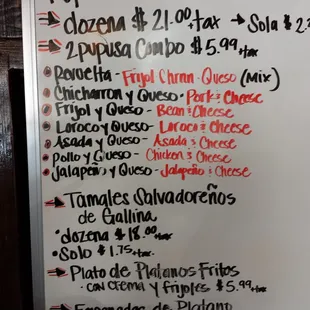 dozena $21.00 +tax → Sola $2.
2 pupusa Combo $5.99 +tax
Revuelta - Frijol Chrrn - Queso (Mix)
Chicharron y Queso - Pork & Cheese
Frijol y Queso - Bean & Cheese
Loroco y Queso - Loroco & Cheese
Asada y Queso - Asada & Cheese
Pollo y Queso - Chicken & Cheese
Jalapeño y Queso - Jalapeño & Cheese
Tamales Salvadoreños
de Gallina
• dozena $18.00 +tax
• Solo $1.75 +tax
Plato de Platanos Fritos
• con crema y frijoles $5.99 +tax
Empanadas de Platano